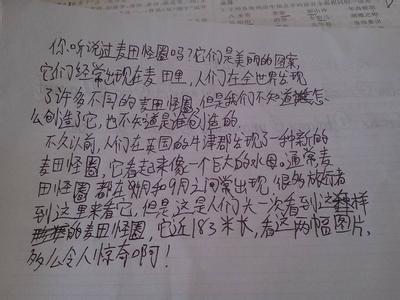 你听说过麦田怪圈吗？它们是美丽的图案，
它们经常出现在麦田里，人们在全世界发现
了许多不同的麦田怪圈，但是我们不知道怎
么创造了它，也不知道是谁创造的。
不久以前，人们在英国的牛津郡发现了一种新的
麦田怪圈，它看起来像一个巨大的水母。通常麦
田怪圈都在8月和9月之间常出现，很多旅行者
到这里来看它，但是这是人们头一次看到这样
的麦田怪圈，它近183米长，看这两幅图片，
多么令人惊奇啊！